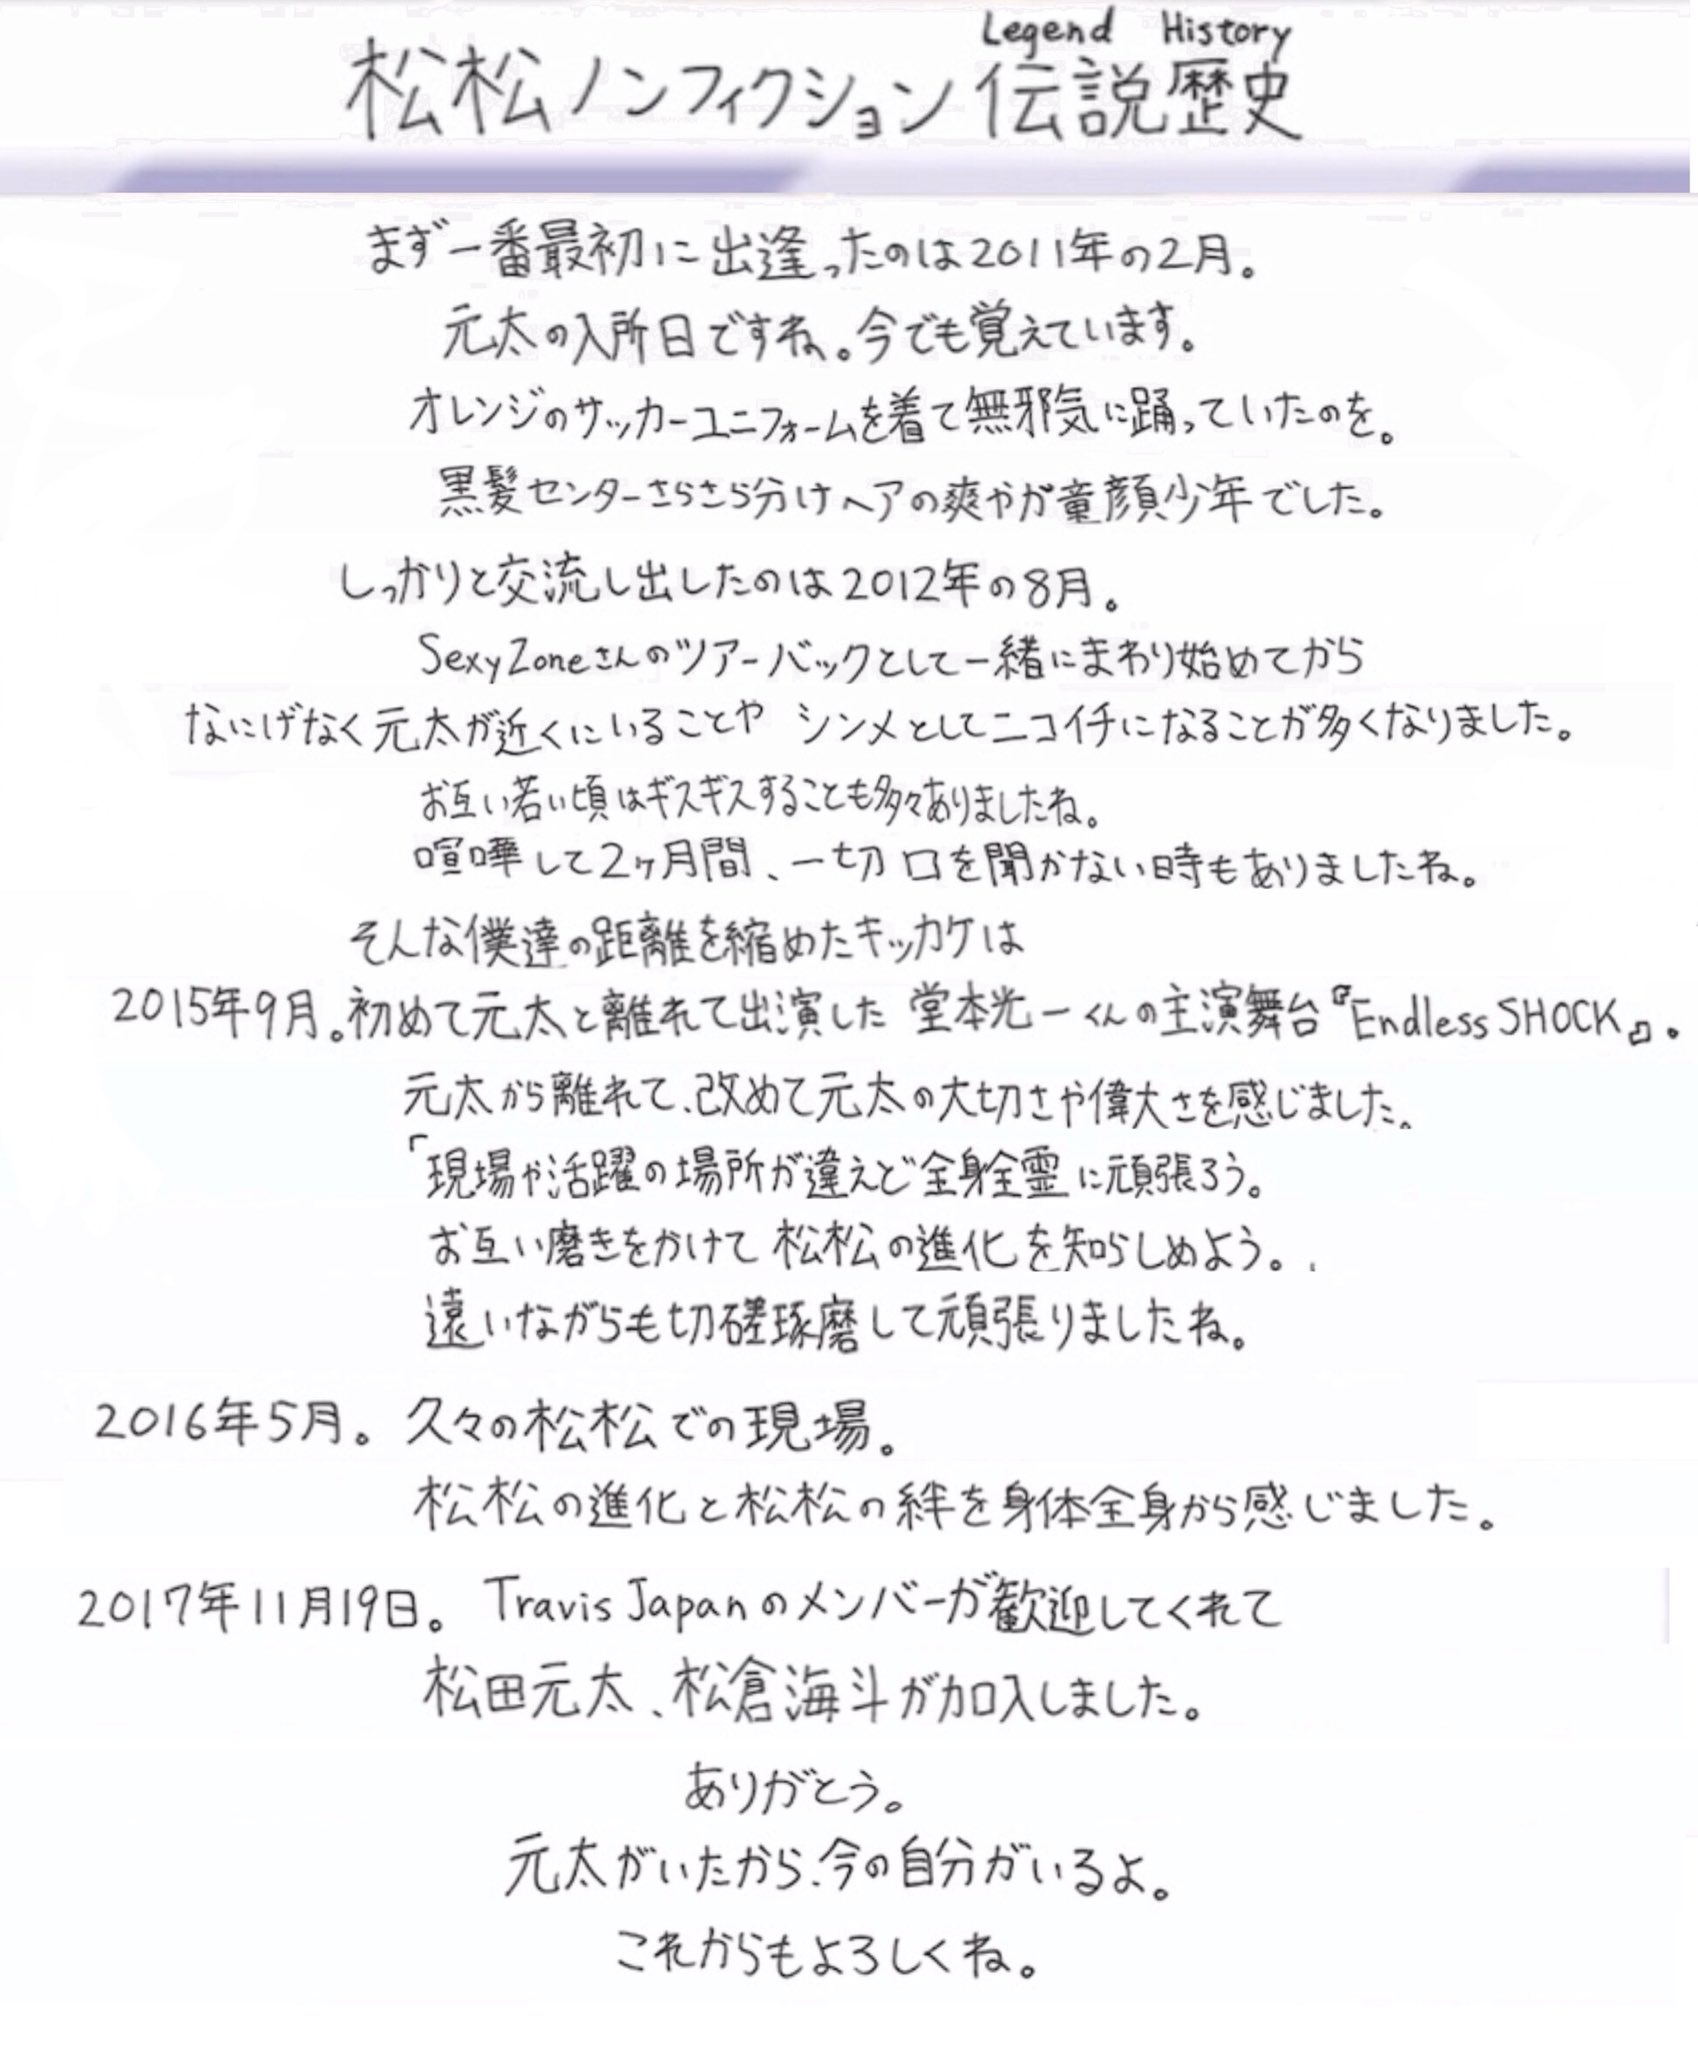 Legend History
松松ノンフィクション伝説歴史
まず一番最初に出逢ったのは2011年の2月。
元太の入所日ですね。今でも覚えています。
オレンジのサッカーユニフォームを着て無邪気に踊っていたのを。
黒髪センターさらさら分けヘアの爽やか童顔少年でした。
しっかりと交流し出したのは2012年の8月。
SexyZoneさんのツアーバックとして一緒にまわり始めてから
なにげなく元太が近くにいることや シンメとしてニコイチになることが多くなりました。
お互い若い頃はギスギスすることも多々ありましたね。
喧嘩して2ヶ月間、一切口を聞かない時もありましたね。
そんな僕達の距離を縮めたキッカケは
2015年9月。初めて元太と離れて出演した 堂本光一くんの主演舞台『Endless SHOCK』。
元太から離れて、改めて元太の大切さや偉大さを感じました。
「現場や活躍の場所が違えど全身全霊に頑張ろう。
お互い磨きをかけて松松の進化を知らしめよう。
遠いながらも切磋琢磨して頑張りましたね。
2016年5月。久々の松松での現場。
松松の進化と松松の絆を身体全身から感じました。
2017年11月19日。Travis Japanのメンバーが歓迎してくれて
松田元太、松倉海斗が加入しました。
ありがとう。
元太がいたから、今の自分がいるよ。
これからもよろしくね。